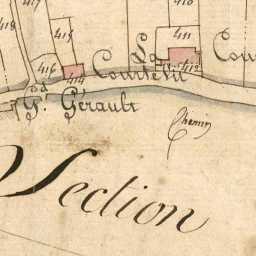 410
418
415
411
La
Cou
416
414
Courtevil
412
Gd. Gérault
Chemin
Section